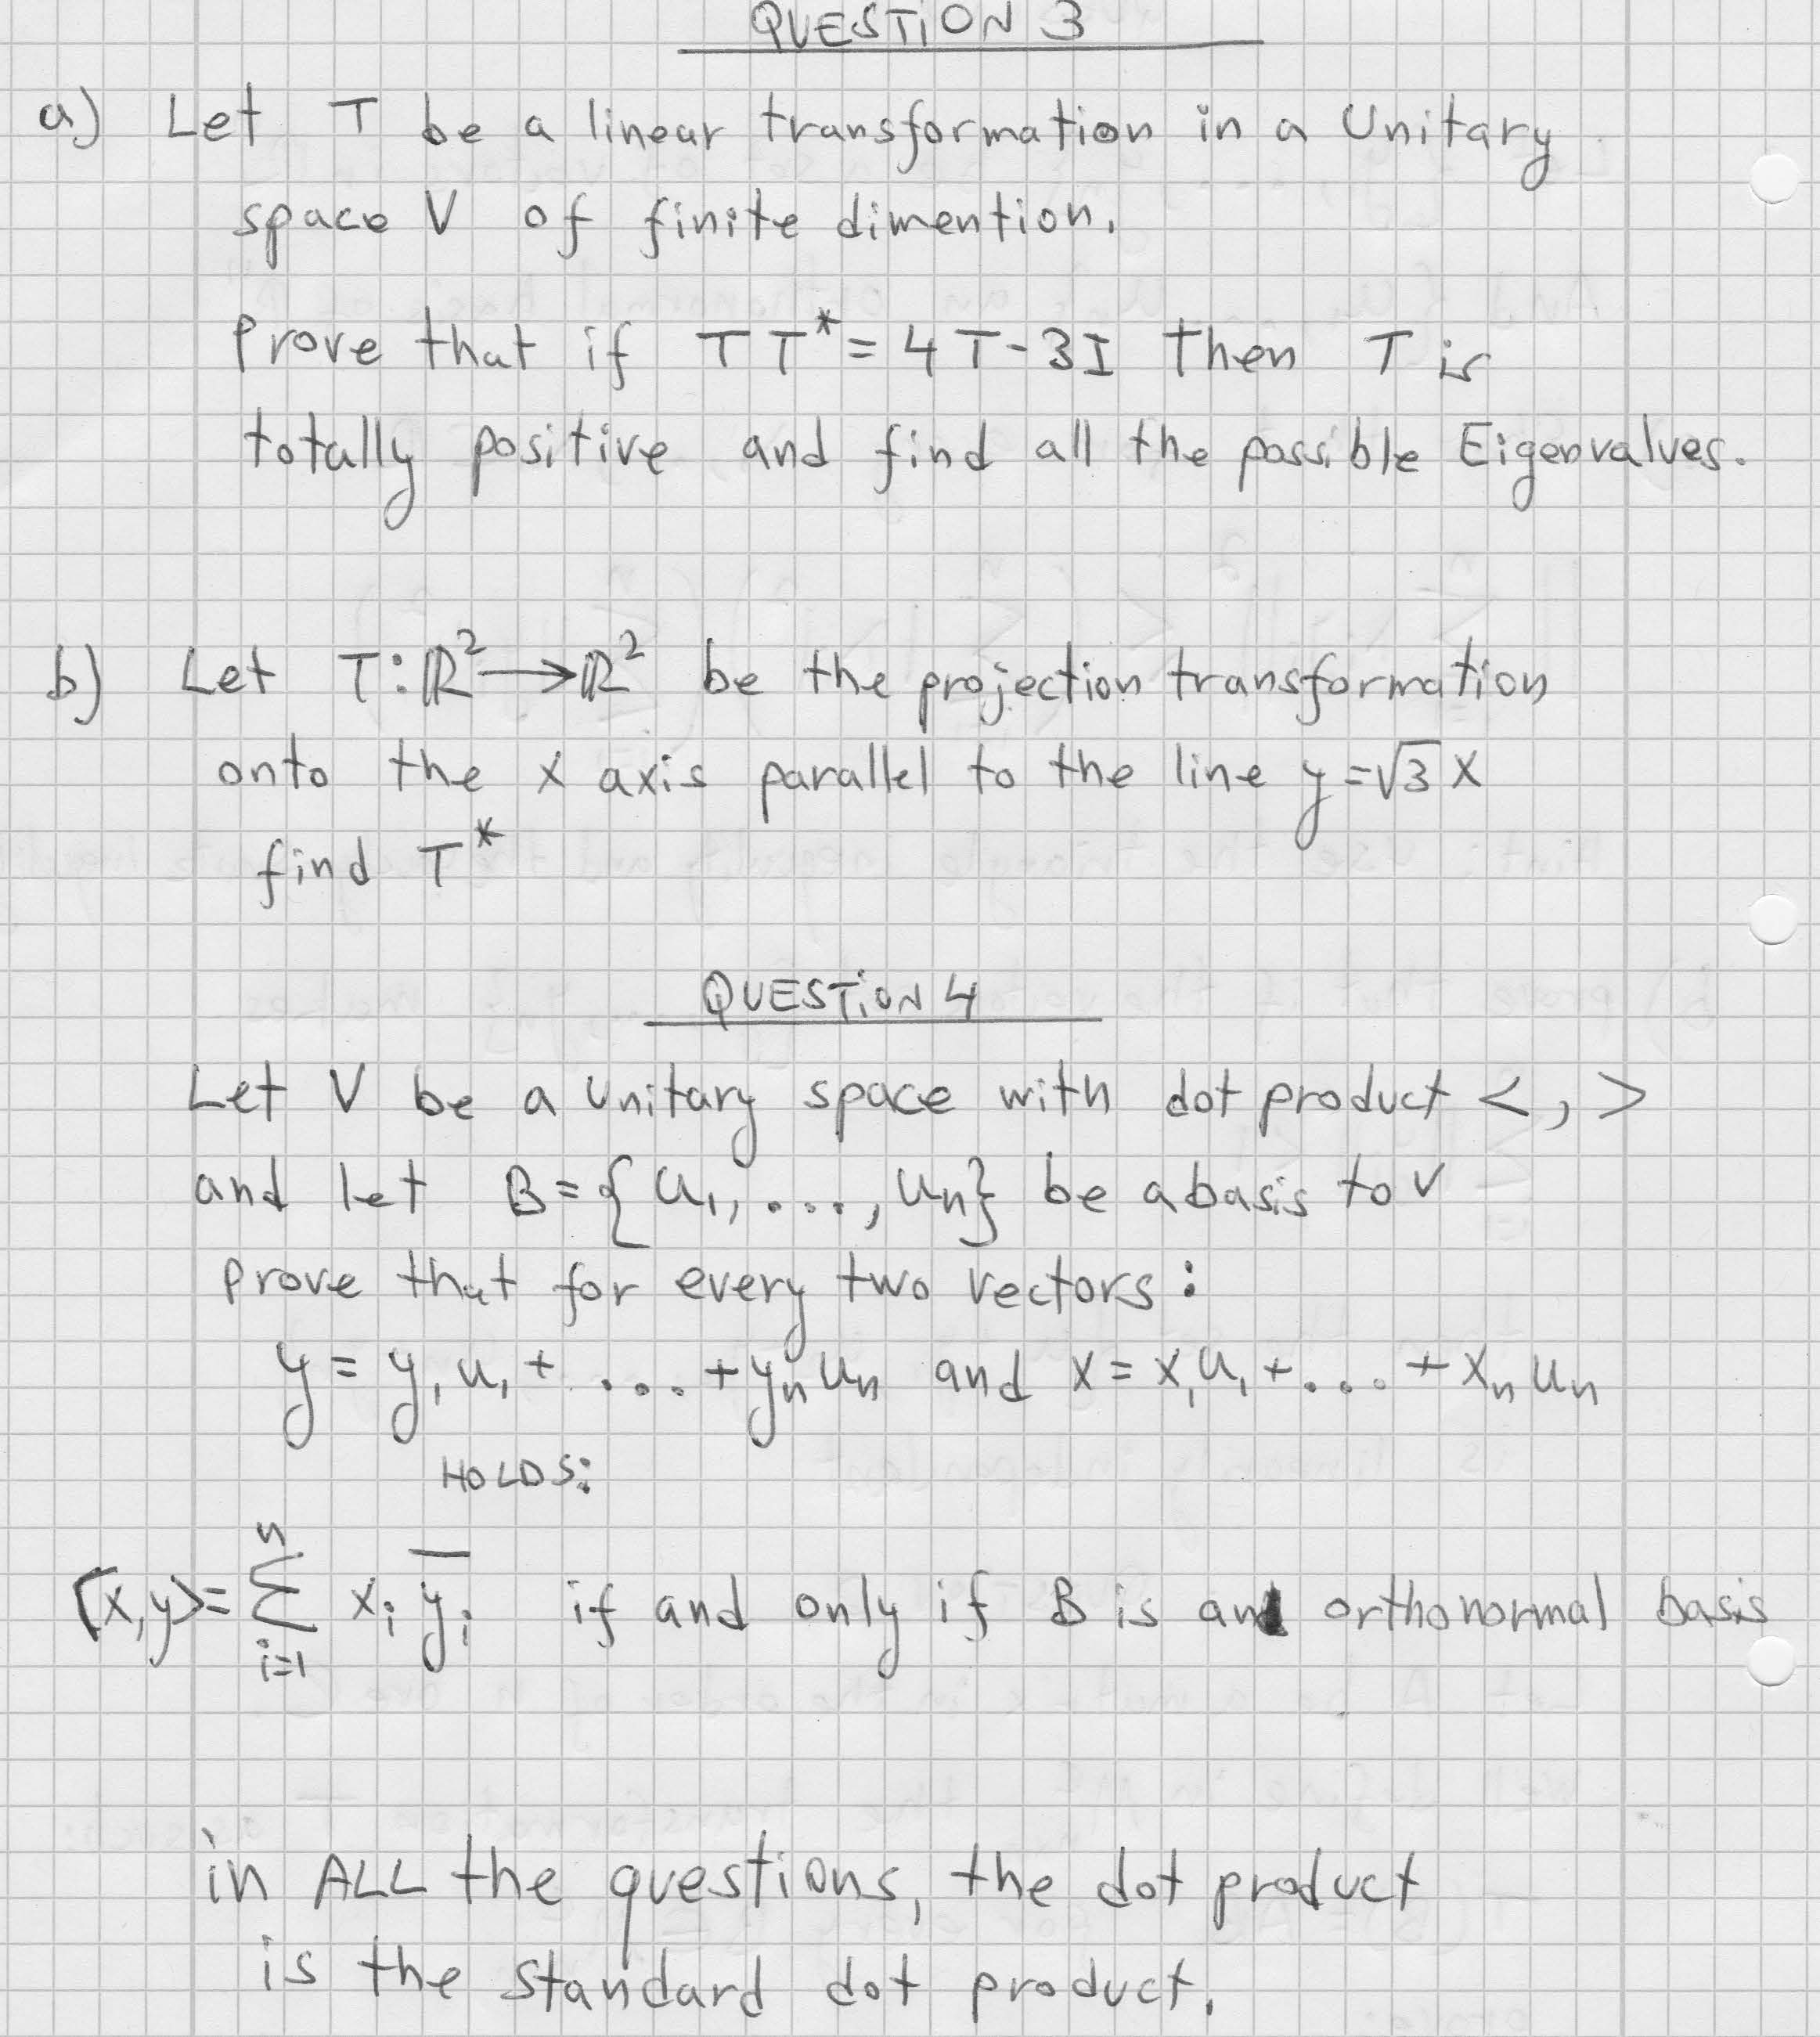 QUESTION 3
a) Let T be a linear transformation in a Unitary
space V of finite dimention.
Prove that if TT* = 4T-3I then T is
totally positive and find all the possible Eigenvalues.
b) Let T:ℝ²→ℝ² be the projection transformation
onto the x axis parallel to the line y=√3 x
find T*
QUESTION 4
Let V be a Unitary space with dot product < , >
and let B={u₁, ...., uₙ} be a basis to V
prove that for every two vectors:
y = y₁u₁+ .... +yₙuₙ and x = x₁u₁+.... +xₙuₙ
HOLDS:
<x,y>= Σ_{i=1}^{n} xᵢ y̅ᵢ if and only if B is an orthonormal basis
in ALL the questions, the dot product
is the standard dot product.